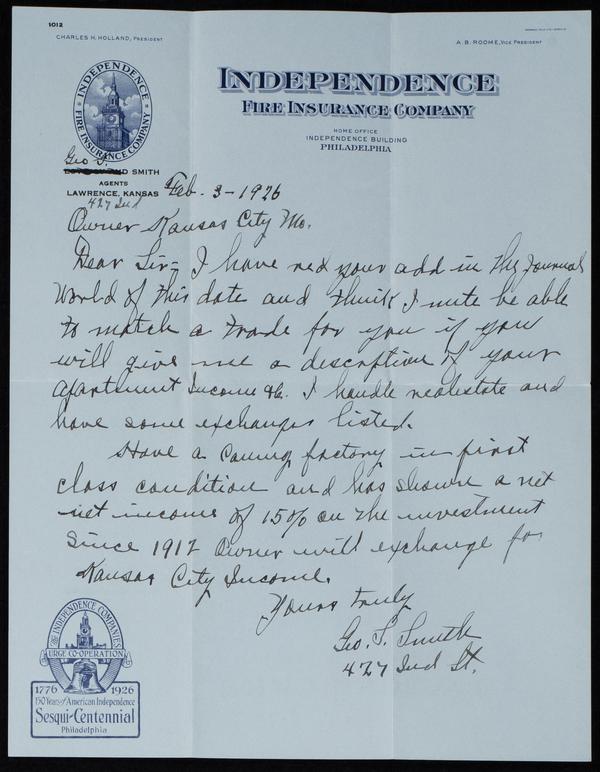 1012
CHARLES H. HOLLAND, PRESIDENT
A. B. ROOME, VICE PRESIDENT
INDEPENDENCE
FIRE INSURANCE COMPANY
INDEPENDENCE
FIRE INSURANCE COMPANY
HOME OFFICE
INDEPENDENCE BUILDING
PHILADELPHIA
Geo S.
SMITH
AGENTS
LAWRENCE, KANSAS
427 Ind
Feb. 3-1926
Owner Kansas City Mo.
Dear Sir- I have red your add in thy Journal
World of this date and think I mite be able
to match a trade for you if you
will give me a descrption of your
apartment Income &c. I handle realestate and
have some exchanges listed.
Have a caning factory in first
class condition and has shown a net
net income of 15% on the investment
since 1912 Owner will exchange for
Kansas City Income.
Yours truly
Geo. S. Smith
427 Ind St.
The INDEPENDENCE COMPANIES
URGE CO-OPERATION
1776 1926
150 Years of American Independence
Sesqui-Centennial
Philadelphia